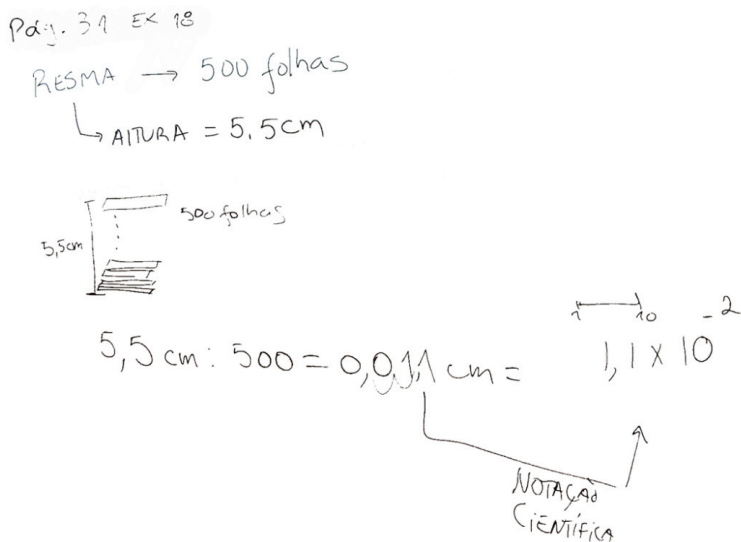 Pág. 31 EX 18
RESMA → 500 folhas
ALTURA = 5,5cm
500 folhas
5,5cm
1 10
5,5 cm : 500 = 0,011 cm = 1,1 x 10⁻²
NOTAÇÃO
CIENTÍFICA